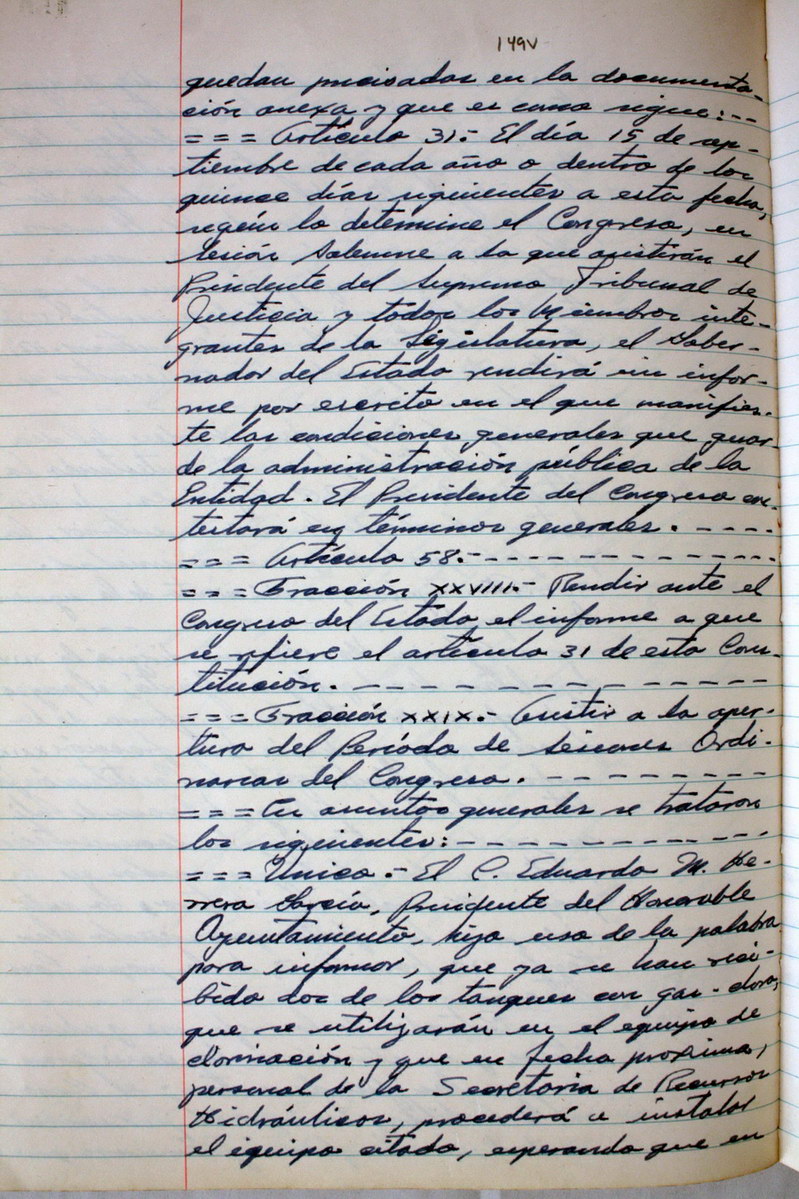 149v
quedan precisadas en la documenta-
ción anexa y que es como sigue:--
=== Artículo 31.- El día 15 de sep-
tiembre de cada año o dentro de los
quince días siguientes a esta fecha,
según lo determine el Congreso, en
sesión solemne a la que asistirán el
Presidente del Supremo Tribunal de
Justicia y todos los Miembros inte-
grantes de la Legislatura, el Gober-
nador del Estado rendirá un infor-
me por escrito en el que manifies-
te las condiciones generales que guar-
de la administración pública de la
Entidad. El Presidente del Congreso con-
testará en términos generales. ----
=== Artículo 58.---------------
=== Fracción XXVIII.- Rendir ante el
Congreso del Estado el informe a que
se refiere el artículo 31 de esta Cons-
titución. --------------
=== Fracción XXIX.- Asistir a la aper-
tura del Período de Sesiones Ordi-
narias del Congreso. ---------
=== En asuntos generales se trataron
los siguientes:------------
=== Unico.- El C. Eduardo M. He-
rrera García, Presidente del Honorable
Ayuntamiento, hizo uso de la palabra
para informar, que ya se han reci-
bido dos de los tanques con gas-cloro,
que se utilizarán en el equipo de
clorinación y que en fecha proxima,
personal de la Secretaria de Recursos
Hidráulicos, procederá a instalar
el equipo citado, esperando que en